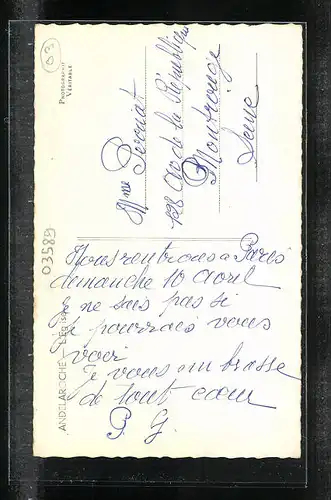 03
PHOTOGRAPHIE
VÉRITABLE
Mme Peronat
128 Av de la République
Montrouge
Seine
03589
ANDELAROCHE - L'EGLISE
Nous rentrons à Paris
dimanche 10 avril
Je ne sais pas si
je pourrais vous
voir
Je vous embrasse
de tout coeur
P. G.